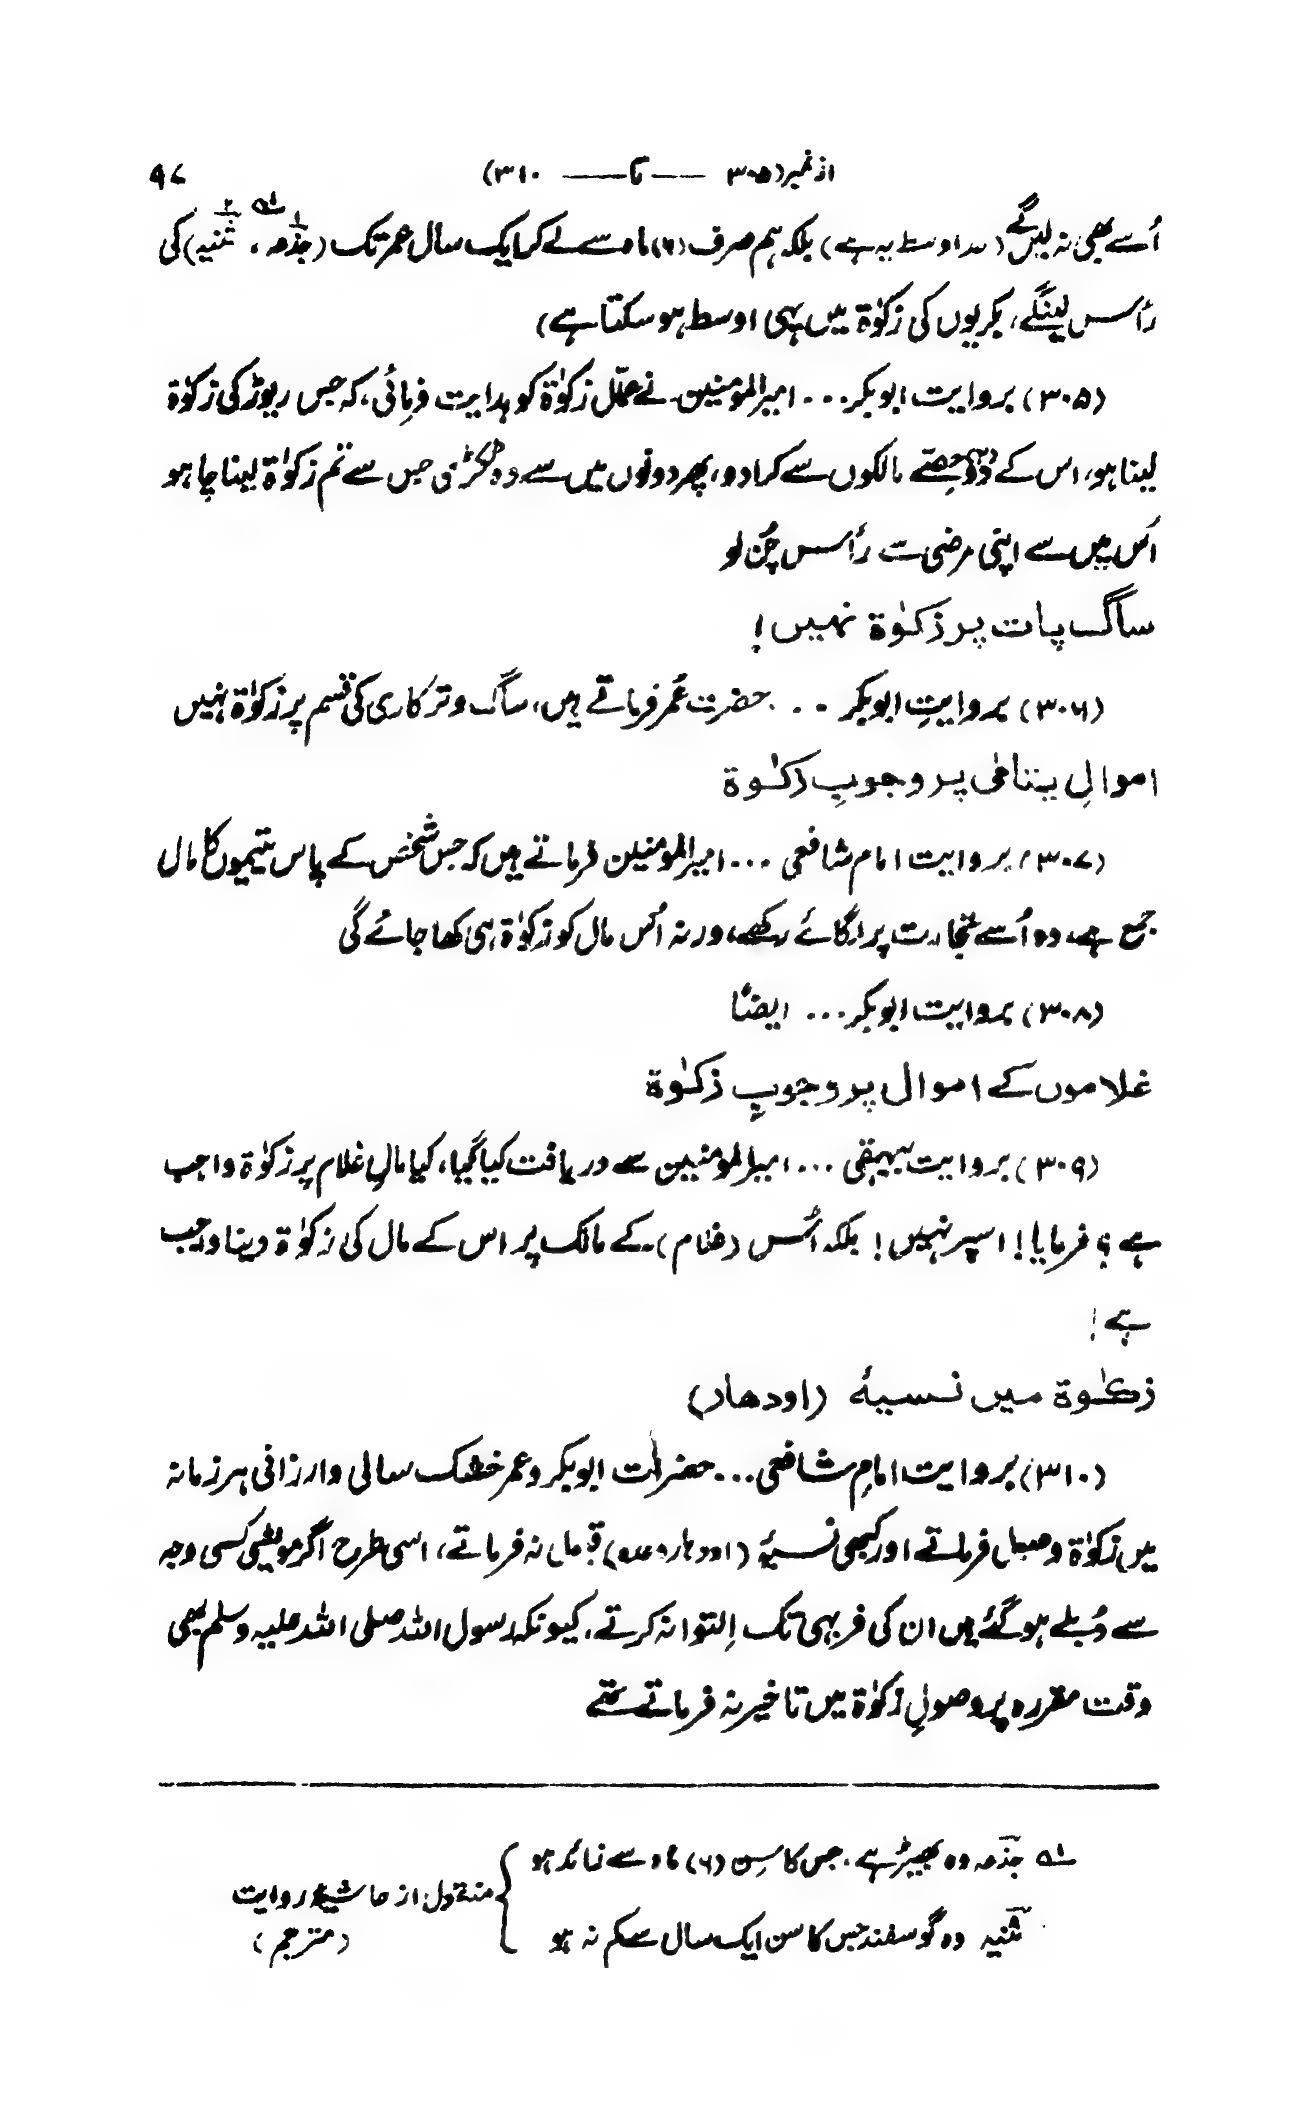 از نمبر (۳۰۵ —— تا —— ۳۱۰) ۹۷
اُسے بھی نہ لیں گے (حد اوسط یہ ہے) بلکہ ہم صرف (۶) ماہ سے لے کر ایک سال عمر تک (جذعہ، ثنیہ) کی
رأس لینگے، بکریوں کی زکوٰۃ میں یہی اوسط ہو سکتا ہے)
(۳۰۵) بروایت ابوبکر... امیر المومنین نے عمّال زکوٰۃ کو ہدایت فرمائی، کہ جس ریوڑ کی زکوٰۃ
لینا ہو، اس کے دو حصّے مالکوں سے کرا دو، پھر دونوں میں سے وہ ٹکڑی جس سے تم زکوٰۃ لینا چاہو
اُس میں سے اپنی مرضی سے رأس چُن لو
ساگ پات پر زکوٰۃ نہیں!
(۳۰۶) بروایتِ ابوبکر ... حضرت عُمر فرماتے ہیں، ساگ و ترکاری کی قسم پر زکوٰۃ نہیں
اموالِ یتامٰی پر وجوبِ زکوٰۃ
(۳۰۷) بروایت امام شافعی ... امیر المومنین فرماتے ہیں کہ جس شخص کے پاس یتیموں کا مال
جمع ہے، وہ اُسے تجارت پر لگائے رکھے، ورنہ اُس مال کو زکوٰۃ ہی کھا جائے گی
(۳۰۸) بروایت ابوبکر... ایضًا
غلاموں کے اموال پر وجوبِ زکوٰۃ
(۳۰۹) بروایت بیہقی ... امیر المومنین سے دریافت کیا گیا، کیا مالِ غلام پر زکوٰۃ واجب
ہے؟ فرمایا! اسپر نہیں! بلکہ اُس (غلام) کے مالک پر اس کے مال کی زکوٰۃ دینا واجب
ہے!
زکوٰۃ میں نسیہٴ (اودھار)
(۳۱۰) بروایت امامِ شافعی... حضرات ابوبکر و عمر خشک سالی و ارزانی ہر زمانہ
میں زکوٰۃ وصول فرماتے اور کبھی نسیہٴ (اودہار و عدہ) قبول نہ فرماتے، اسی طرح اگر مویشی کسی وجہ
سے دُبلے ہو گئے ہیں ان کی فربہی تک اِلتوا نہ کرتے، کیونکہ رسول اللہ صلی اللہ علیہ وسلم بھی
وقت مقررہ پر وصولِ زکوٰۃ میں تاخیر نہ فرماتے تھے
۱ہ جذعہ وہ بھیڑ ہے، جس کا سِن (۶) ماہ سے زائد ہو
ثنیہ وہ گوسفند جس کا سن ایک سال سے کم نہ ہو
منقول از حاشیہ روایت
(مترجم)